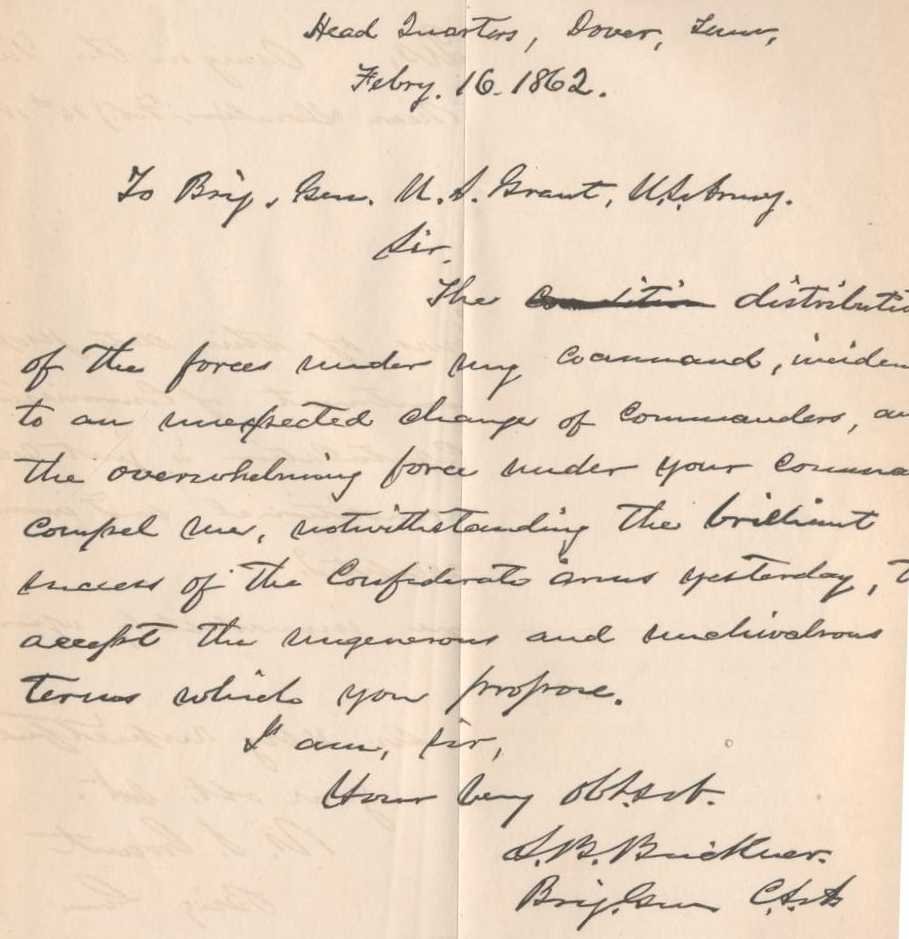 Head Quarters, Dover, Tenn,
Febry. 16. 1862.
To Brig. Gen. U. S. Grant, U.S. Army.
Sir.
The condition distributio
of the forces under my command, inciden
to an unexpected change of commanders, an
the overwhelming force under your comma
compel me, notwithstanding the brilliant
success of the Confederate arms yesterday, t
accept the ungenerous and unchivalrous
terms which you propose.
I am, sir,
Your very obt. svt.
S. B. Buckner.
Brig. Gen C.S.A